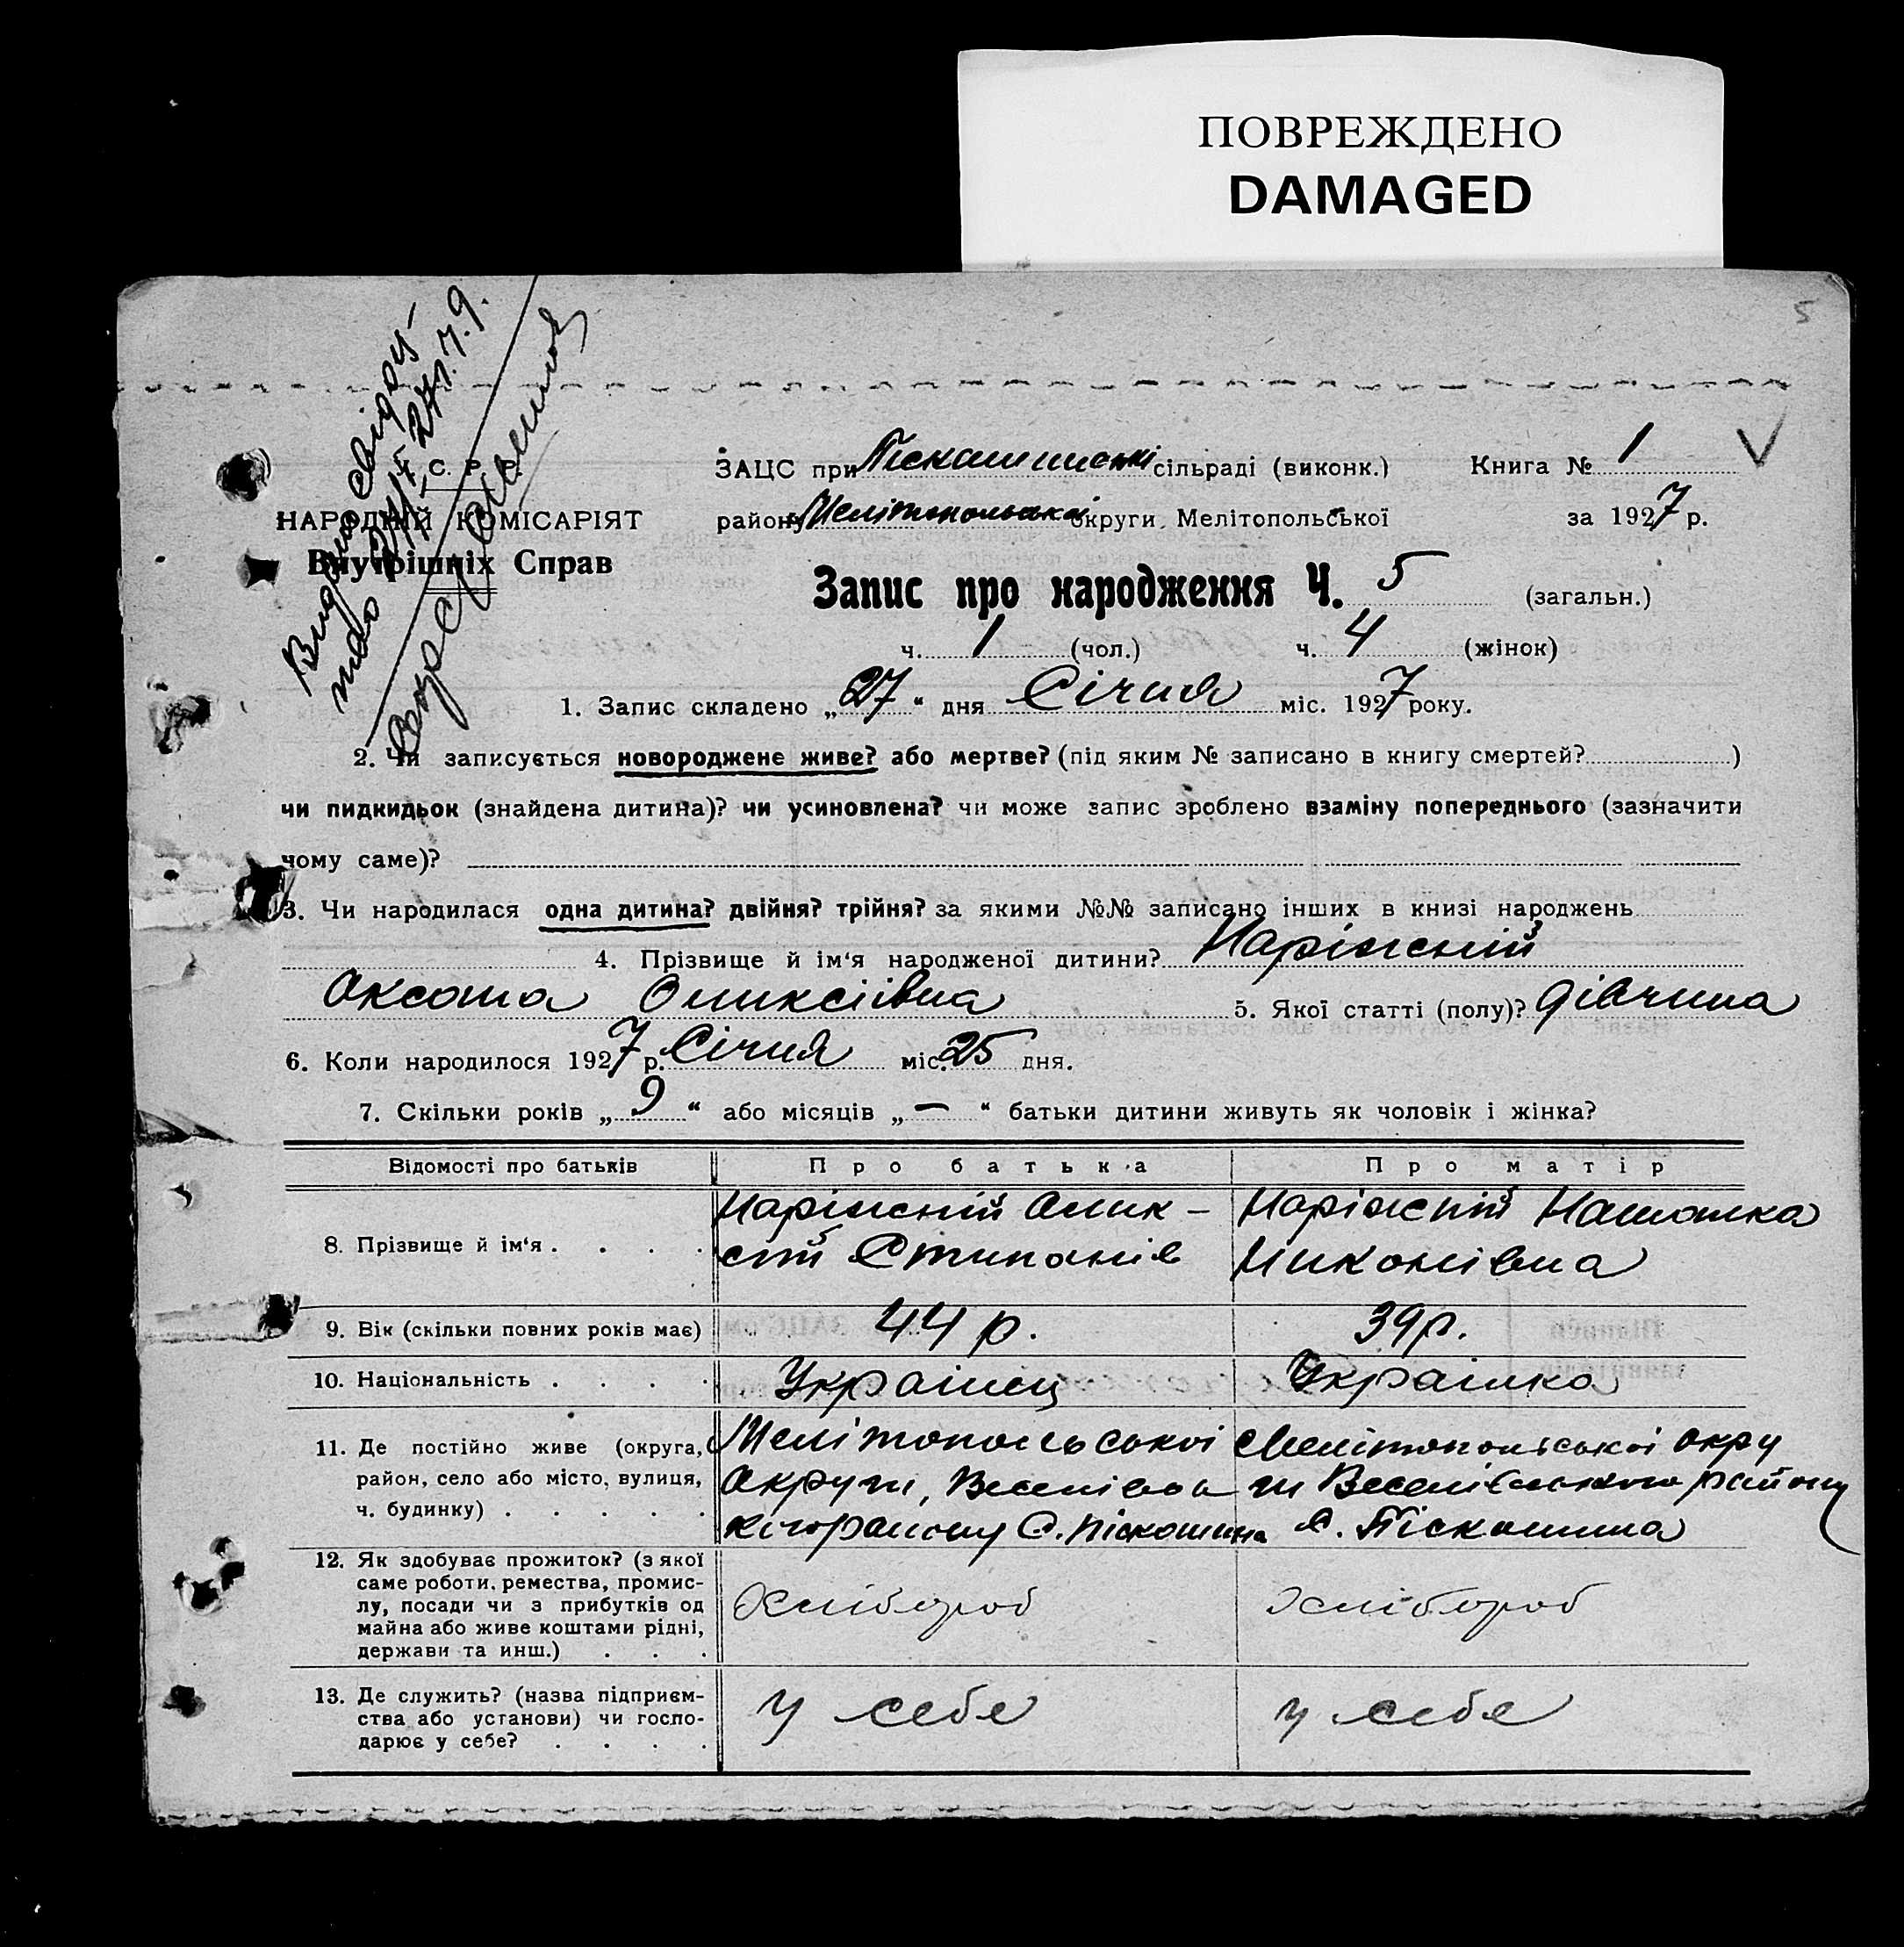 ПОВРЕЖДЕНО
DAMAGED
5
Видано свідоц-
тво 24.7.9.
У. С. Р. Р.
НАРОДНІЙ КОМІСАРІЯТ
Внутрішніх Справ
ЗАЦС при Піскашинські сільраді (виконк.) Книга № 1
району Мелітопольська округи Мелітопольської за 1927 р.
Запис про народження Ч. 5 (загальн.)
ч. 1 (чол.) ч. 4 (жінок)
1. Запис складено „27“ дня Січня міс. 1927 року.
2. Чи записується новороджене живе? або мертве? (під яким № записано в книгу смертей? )
чи пидкидьок (знайдена дитина)? чи усиновлена? чи може запис зроблено взаміну попереднього (зазначити
чому саме)?
3. Чи народилася одна дитина? двійня? трійня? за якими №№ записано інших в книзі народжень
4. Прізвище й ім‘я народженої дитини? Наріжній
Оксана Оликсіівна 5. Якої статті (полу)? дівчина
6. Коли народилося 1927 р. Січня міс. 25 дня.
7. Скільки років „9“ або місяців „—“ батьки дитини живуть як чоловік і жінка?
Відомості про батьків Про батька Про матір
8. Прізвище й ім‘я . . . . Наріжній Олик- Наріжній Наталка
сій Стипанів Никонівна
9. Вік (скільки повних років має) 44 р. 39 р.
10. Національність . . . . Украінец Украінка
11. Де постійно живе (округа, Мелітопольськоі Мелітопольськоі окру
район, село або місто, вулиця, Округи, Веселівсь ги Веселівського району
ч. будинку) . . . . . кого району С. Піскошина с. Піскошина
12. Як здобуває прожиток? (з якої
саме роботи, ремества, промис-
лу, посади чи з прибутків од Хлібороб Хлібороб
майна або живе коштами рідні,
держави та инш.) . . .
13. Де служить? (назва підприєм-
ства або установи) чи госпо- У себе у себе
дарює у себе? . . . .